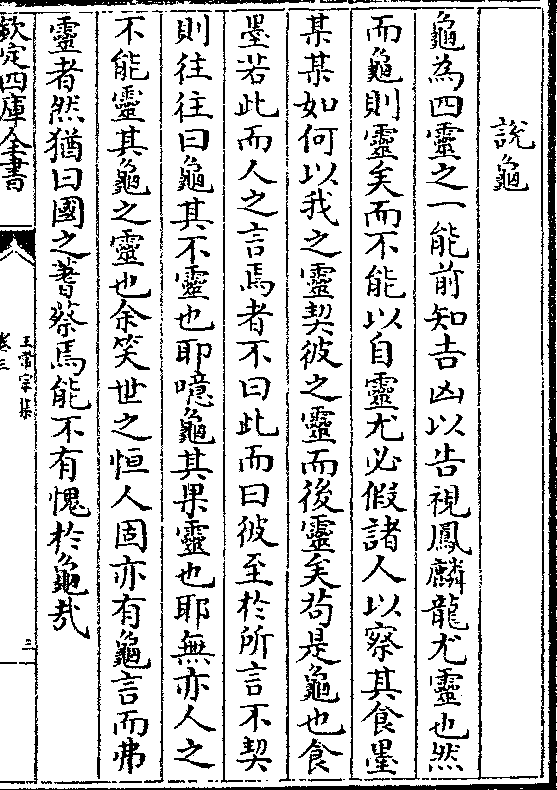 說龜
龜為四靈之一能前知吉凶以告視鳳麟龍尤靈也然
而龜則靈矣而不能以自靈尤必假諸人以察其食墨
某某如何以我之靈契彼之靈而後靈矣茍是龜也食
墨若此而人之言焉者不曰此而曰彼至於所言不契
則往往曰龜其不靈也耶噫龜其果靈也耶無亦人之
不能靈其龜之靈也余笑世之恒人固亦有龜言而弗
靈者然猶曰國之蓍蔡焉能不有愧於龜哉
欽定四庫全書
王常宗集
卷三
三